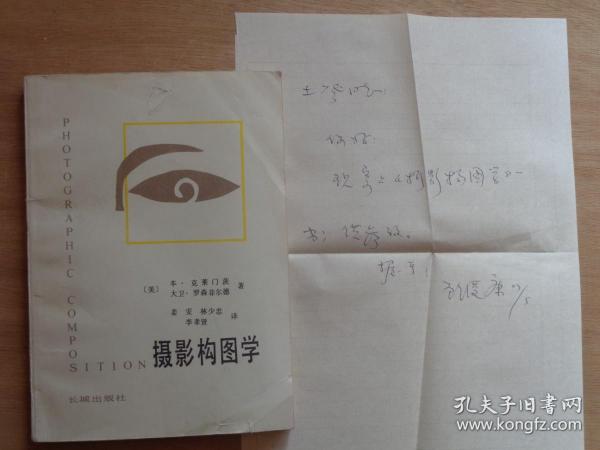 PHOTOGRAPHIC COMPOSITION
〔美〕 本·克莱门茨
大卫·罗森菲尔德 著
姜雯 林少忠
李孝贤 译
摄影构图学
长城出版社
你好!
现寄上《摄影构图学》一
书,供参考。
握手!
孔夫子旧书网
www.kongfz.com